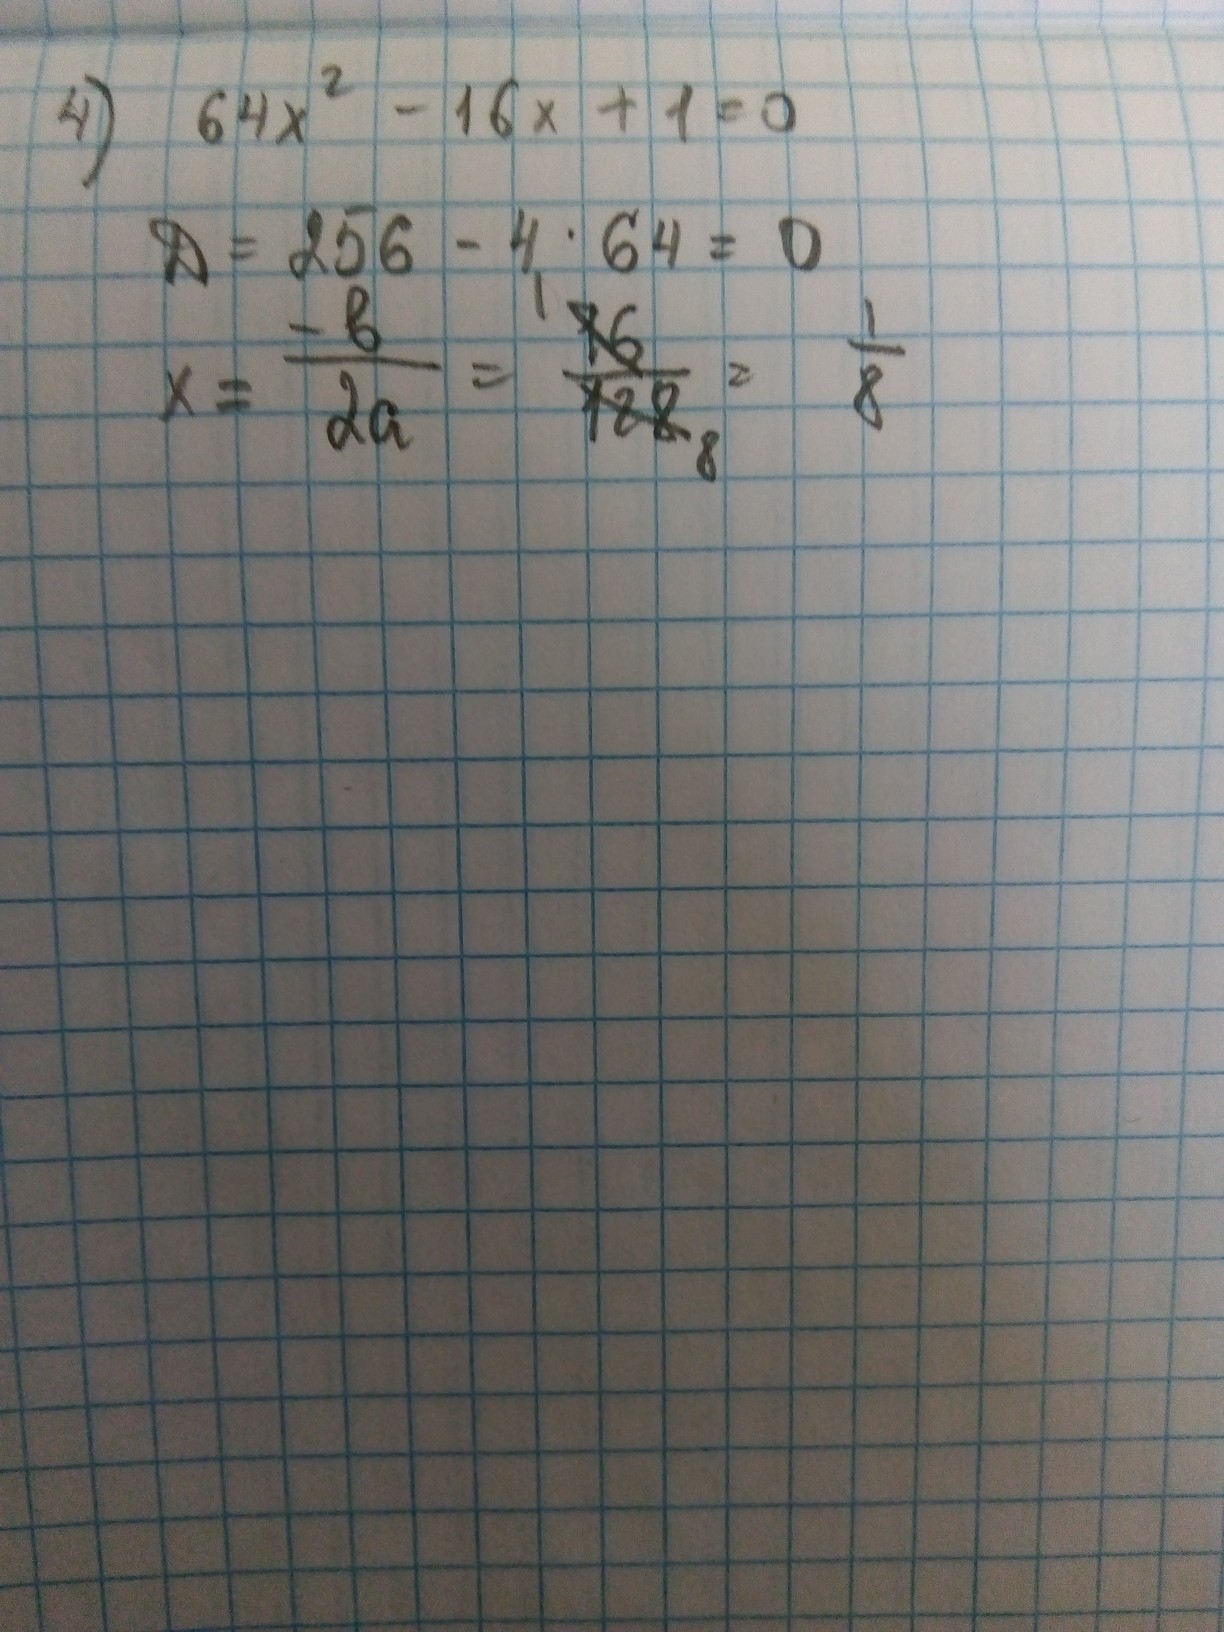 4) 64x² - 16x + 1 = 0
D = 256 - 4 · 64 = 0
x = -b/2a = 16/128 = 1/8
1 8